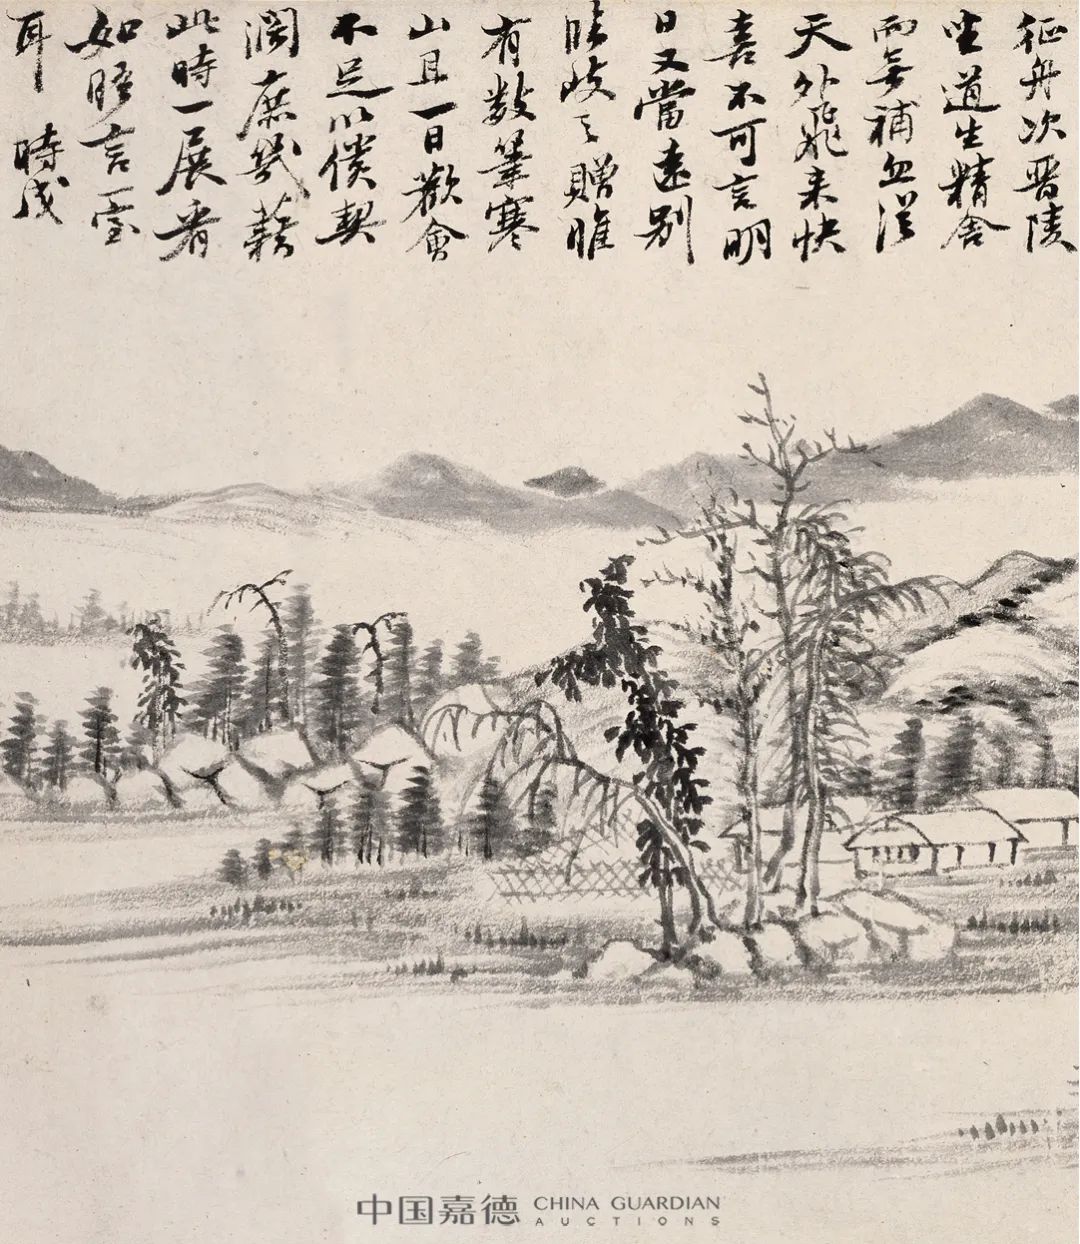 征舟次晋陵
坐道生精舍
而補忽從
天外飛来快
喜不可言明
日又當遠别
臨歧之贈唯
有數筆寒
山且一日歡會
不足以償契
濶庶幾藉
此時一展看
如晤言一室
耳 時戊
中国嘉德 CHINA GUARDIAN
AUCTIONS